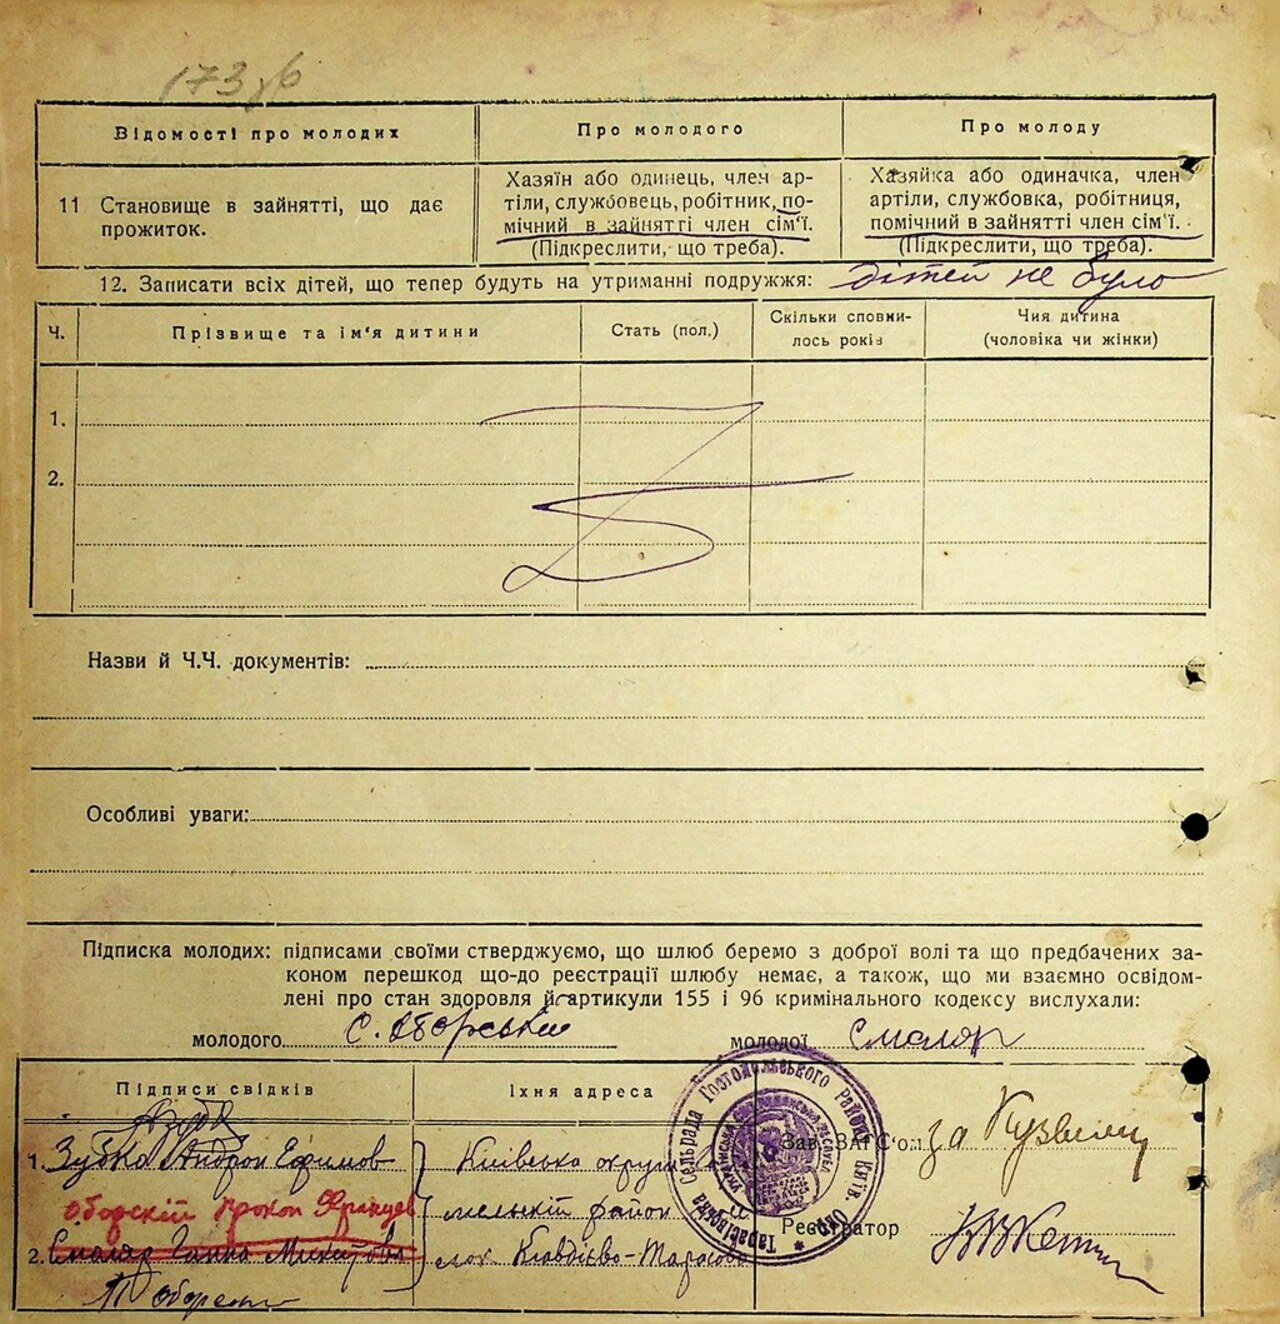 173
Відомості про молодих
Про молодого
Про молоду
11 Становище в зайнятті, що дає
прожиток.
Хазяїн або одинець, член ар-
тіли, службовець, робітник, по-
мічний в зайнятті член сім'ї.
(Підкреслити, що треба).
Хазяйка або одиначка, член
артіли, службовка, робітниця,
помічний в зайнятті член сім'ї.
(Підкреслити, що треба).
12. Записати всіх дітей, що тепер будуть на утриманні подружжя: дітей не було
Ч.
Прізвище та ім'я дитини
Стать (пол.)
Скільки сповни-
лось років
Чия дитина
(чоловіка чи жінки)
1.
2.
Назви й Ч.Ч. документів:
Особливі уваги:
Підписка молодих: підписами своїми стверджуємо, що шлюб беремо з доброї волі та що предбачених за-
коном перешкод що-до реєстрації шлюбу немає, а також, що ми взаємно освідом-
лені про стан здоровля й артикули 155 і 96 кримінального кодексу вислухали:
молодого С. Оборський молодої Смаляр
Підписи свідків
Їхня адреса
1. Зубко Андрон Єфимов
Оборскій Прокоп Францев
2. Смаляр Ганна Микитовна
Київська округа
мельскій район
Клавдієво-Тарасово
Тарасівська Сельрада Гостомельського Району Київ. Округи
Зав. ЗАГС'ом за
Реєстратор